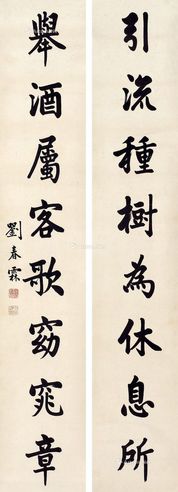 引流種樹為休息所
舉酒屬客歌窈窕章
劉春霖